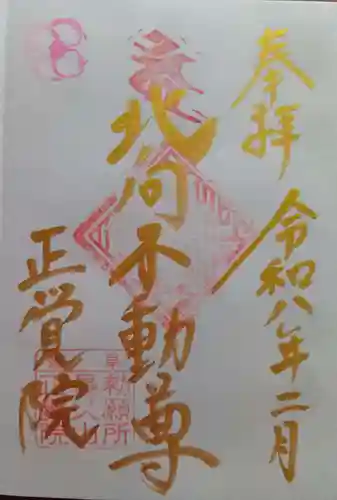 奉拝
令和八年二月
北向不動尊
正覚院